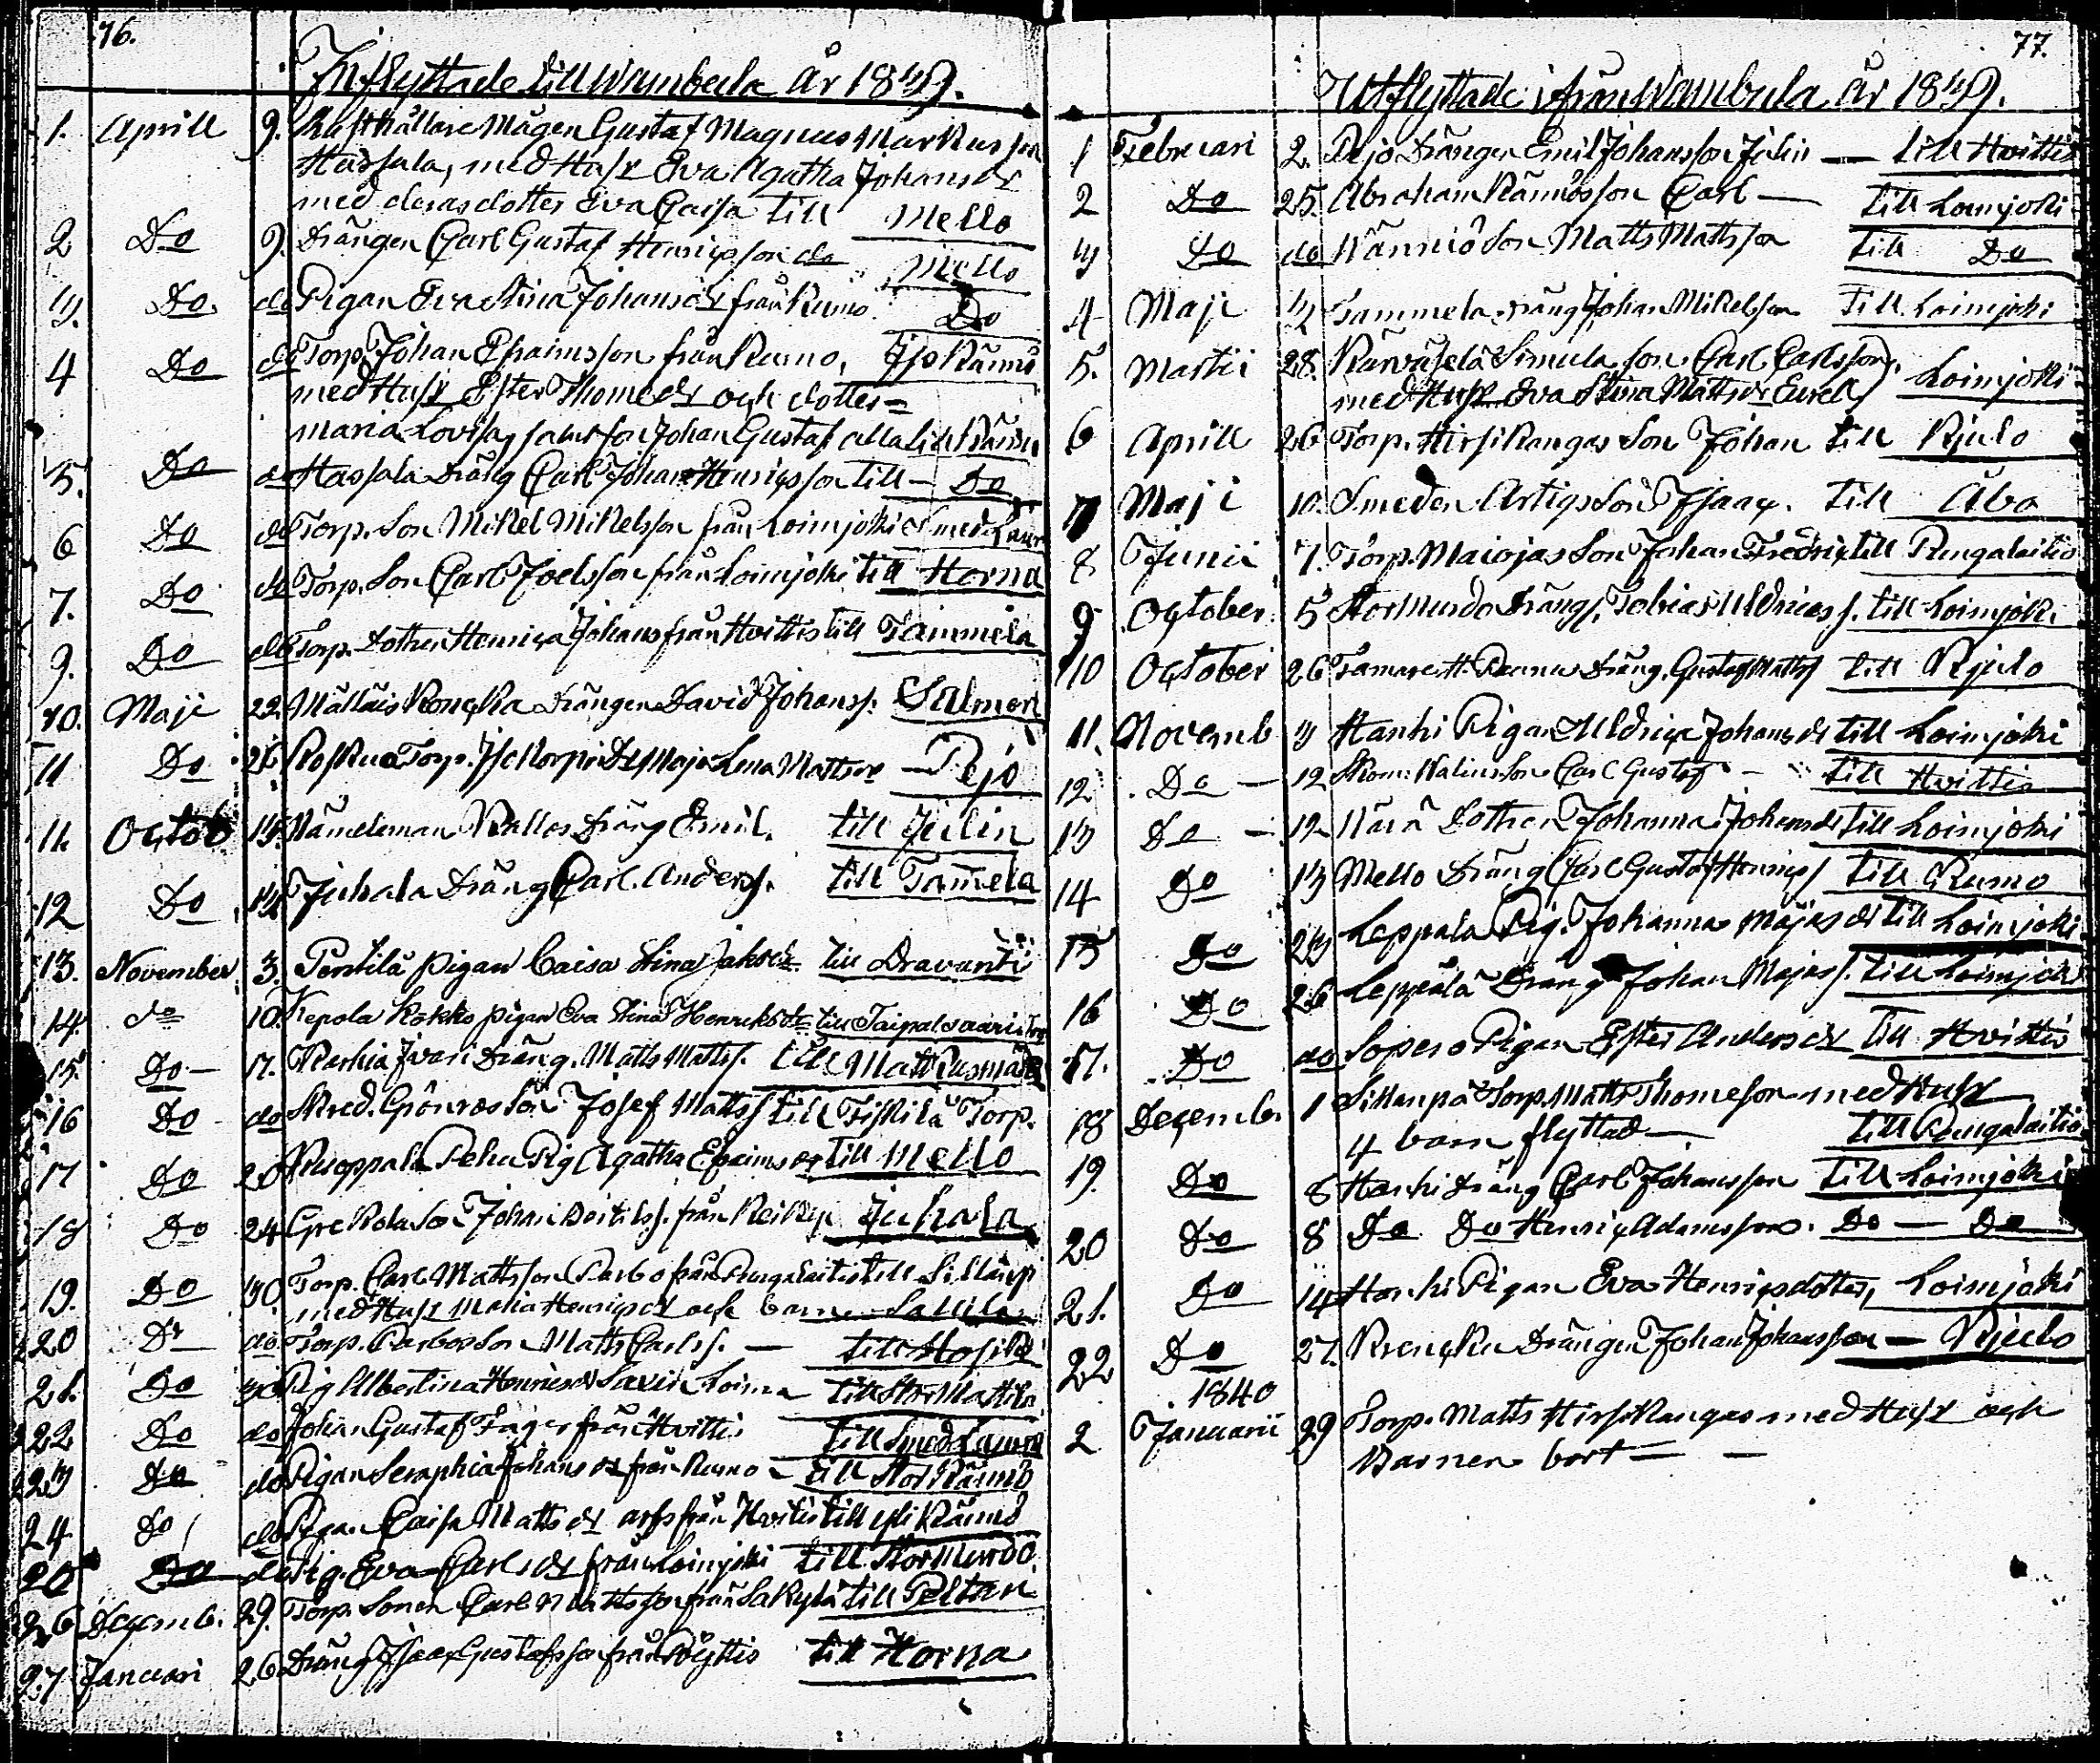 76.
Inflyttade till Wambula År 1839.
1. Aprill 9. Rusthållare Mågen Gustaf Magnus Markusson
Hassala, med Hustr Eva Agatha Johansdr
med deras dotter Eva Caisa till Mello
2 Do 9. Drängen Carl Gustaf Henricsson do Mello
3. Do. do Pigan Eva Stina Johansdr från Kumo Do
4 Do do Torp. Johan Efraimsson från Kumo, Iso Rämö
med Hustr Ester Thomedr och dotter=
Maria Lovisa, samt son Johan Gustaf alla till Rämö
5. Do do Hassala Dräng Carl Johan Henricsson till — Do
6 Do do Torp. Son Mikel Mikelsson från Loimjoki Smed Laur
7. Do do Torp. Son Carl Joelsson från Loimjoki till Horna
9. Do do Torp. Dotter Henrica Johans från Hvittis till Tammela
10. Maji 22. Mälläis Koncka Drängen David Johanss. Salmen
11 Do 26 Torp. Iso Korpi Dr Maja Lena Mattsdr — Pejo
11. Octob 13. Nämdeman Kallos Dräng Emil. till Julin
12 Do 14 Juhala Dräng Carl. Anderss. till Tamela
13. November 3. Pentilä pigan Caisa Stina Jaksdr till Dravanti
14. do 10. Kepola Kokko pigan Eva Stina Henriksdr till Taipalsaari torp
15. Do — 17. Karhia Ivari Dräng. Matts Mattss. till Matt Kusmasa
16 Do do Skred. Grönroos Son Josef Mattss till Friskilä Torp.
17 Do 20 Kuoppala Pelu Pig Agatha Efraimsdr till Mello
18 Do 24 Grekola Son Johan Deitilss. från Keikyä Juhala
19. Do 30. Torp. Carl Mattsson Parbo från Pungalaitio till Sillänp
med Hustr Maria Henricsdr och barn — Sallila
20 Do do Torp. Parbos Son Matts Carlss. — till
21. Do 30 Pig Albertina Henricsdr Loima till Stor Mattila
22 Do do Johan Gustaf Fager från Hvittis till Smed Laura
23 Do do Pigan Seraphia Johansdr från Kumo — till Stor Rämö
24 Do do Pigan Caisa Matts dr från Hvittis till Yli Rämö
20 Do do Pig. Eva Carlsdr från Loimjoki till Stor Murdo
26 Decemb. 29. Torp. Sonen Carl Mattsson från Säkylä till Peltari
27 Januari 26 Dräng Isaac Gustafsson från Pöyttis till Horna
77.
Utflyttade ifrån Wambula år 1839.
1 Februari 2. Pejo Drängen Emil Johansson Julin — till Hvittis
2 Do 25. Abraham Rämös son Carl — till Loimjoki
3 Do do Nänniö Son Matts Mattsson till Do
4 Maji 3 Tammela dräng Johan Mikelsson till Loimjoki
5. Martii 28. Karväselä Simula son Carl Carlsson,
med Hustr Eva Stina Mattsdr Eurell Loimjoki
6 Aprill 26 Torp. Hirsikangas Son Johan till Kjulo
7 Maji 10. Smeden Artigs Son Isaac. till Åbo
8 Junii 7. Torp. Maiojas Son Johan Fredric till Pungalaitio
9 October 5 Stor Murdo Dräng. Tobias Uldricss. till Loimjoki
10 October 26 Dräng. Gustaf Matss till Kjulo
11. Novemb 3 Hanhi Pigan Uldrica Johansdr till Loimjoki
12. Do — 12 Skom. Walins Son Carl Gustaf — till Hvittis
13 Do — 12 Närä Dotter Johanna Johansdr till Loimjoki
14 Do 13 Mello Dräng Carl Gustaf Henricss till Kumo
15 Do 23 Leppälä Pig. Johanna Majasdr till Loimjoki
16 Do 26 Leppälä Dräng Johan Majass. till Loimjoki
17. Do do Sopero Pigan Ester Andersdr till Hvittis
18 Decemb. 1 Sillanpä Torp. Matts Thomeson med Hustr
4 barn flyttad — till Pungalaitio
19. Do 8 Hanhi Dräng Carl Johansson till Loimjoki
20 Do 8 Do Do Henric Adamsson. Do — Do
21. Do 14 Hanhi Pigan Eva Henricsdotter, Loimjoki
22 Do 27. Krencku Drängen Johan Johansson — Kjulo
1840
2 Januarii 29 Torp. Matts Hirsikangas med Hustr och
Barnen bort — —